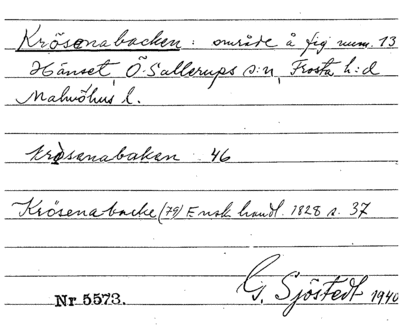 Krösenabacken: område å fig num. 13
Hänset, Ö. Sallerups s:n, Frosta h:d
Malmöhus l.
krösenabaken 46
Krösenabacke (79) Ensk. handl. 1828 s. 37
Nr 5573. G. Sjöstedt 1940